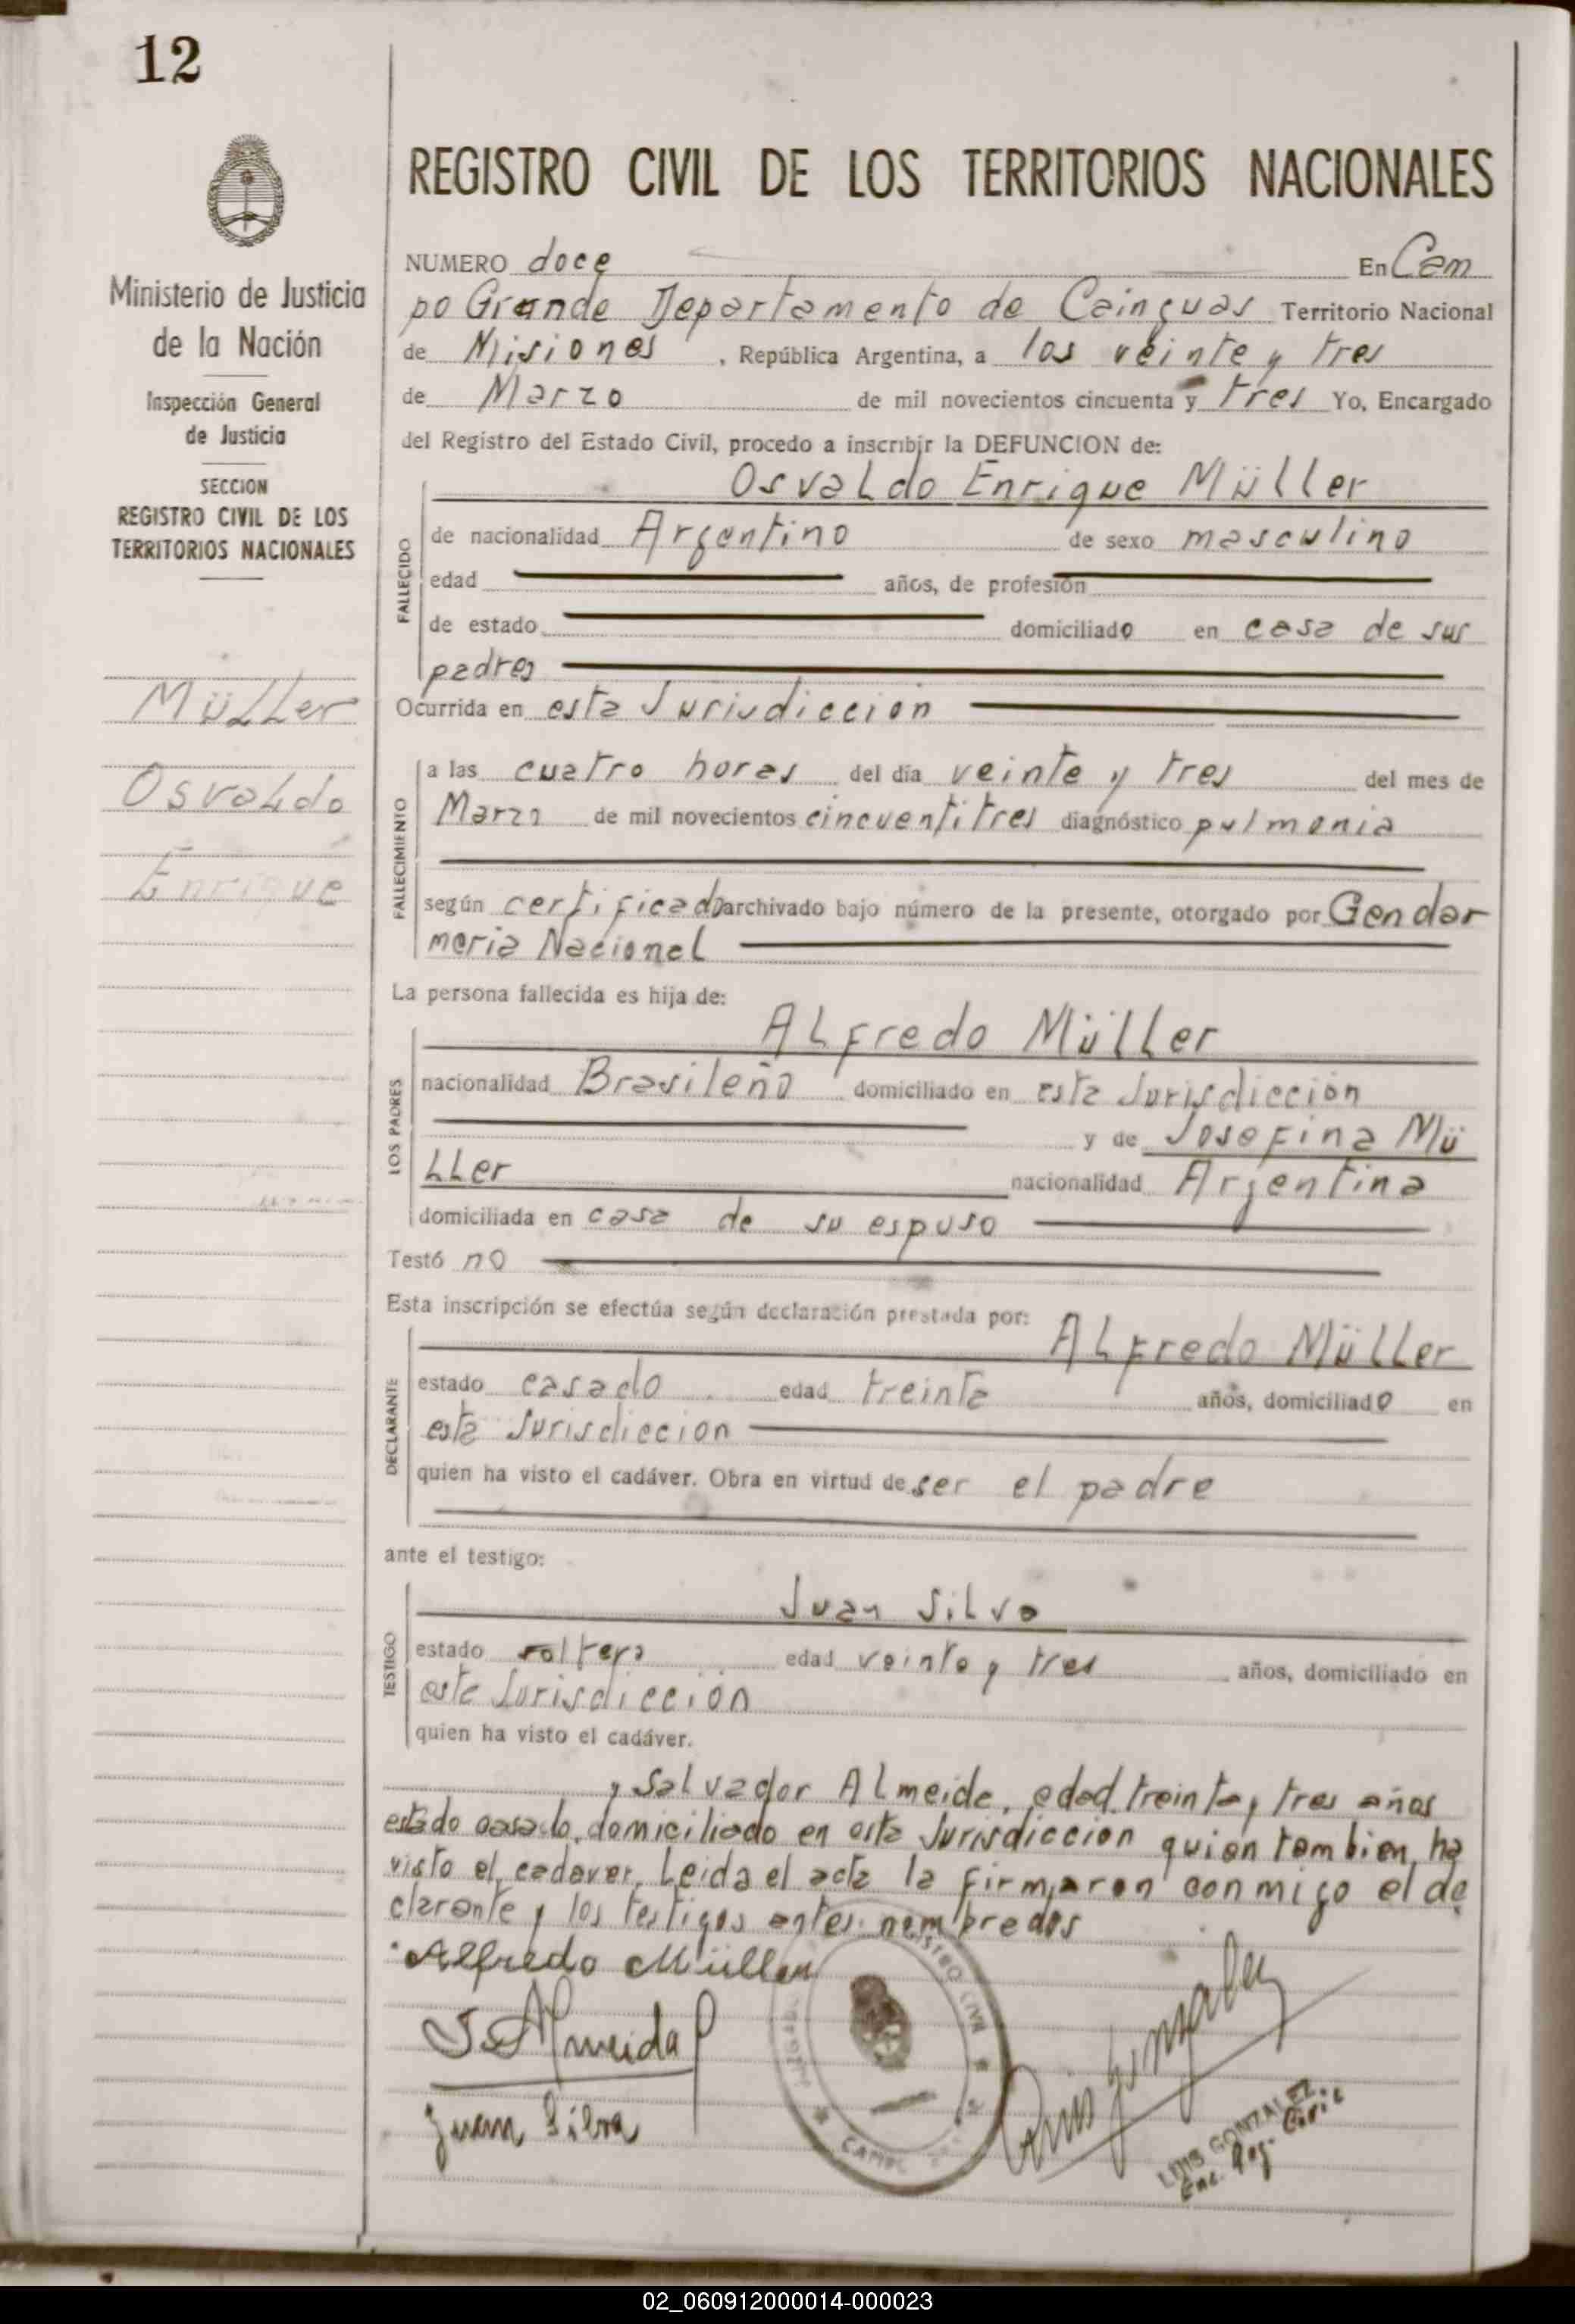 12
REGISTRO CIVIL DE LOS TERRITORIOS NACIONALES
Ministerio de Justicia
de la Nación
Inspección General
de Justicia
SECCION
REGISTRO CIVIL DE LOS
TERRITORIOS NACIONALES
Müller
Osvaldo
Enrique
NUMERO doce En Cam
po Grande Departamento de Cainguas Territorio Nacional
de Misiones, República Argentina, a los veinte y tres
de Marzo de mil novecientos cincuenta y tres Yo, Encargado
del Registro del Estado Civil, procedo a inscribir la DEFUNCION de:
Osvaldo Enrique Müller
FALLECIDO
de nacionalidad Argentino de sexo masculino
edad años, de profesión
de estado domiciliado en casa de sus
padres
Ocurrida en esta Jurisdiccion
FALLECIMIENTO
a las cuatro horas del día veinte y tres del mes de
Marzo de mil novecientos cincuentitres diagnóstico pulmonia
según certificado archivado bajo número de la presente, otorgado por Gendar
meria Nacional
La persona fallecida es hija de:
Alfredo Müller
LOS PADRES
nacionalidad Brasileño domiciliado en esta Jurisdicción
y de Josefina Mü
ller nacionalidad Argentina
domiciliada en casa de su esposo
Testó no
Esta inscripción se efectúa según declaración prestada por:
Alfredo Müller
DECLARANTE
estado casado edad treinta años, domiciliado en
esta Jurisdiccion
quien ha visto el cadáver. Obra en virtud de ser el padre
ante el testigo:
Juan Silva
TESTIGO
estado soltero edad veinte y tres años, domiciliado en
esta Jurisdicción
quien ha visto el cadáver.
y Salvador Almeida, edad treinta y tres años
estado casado, domiciliado en esta Jurisdiccion quien tambien ha
visto el cadaver. Leida el acta la firmaron conmigo el de
clarante y los testigos antes nombrados
Alfredo Müller
S. Almeida
Juan Silva
Luis Gonzalez
LUIS GONZALEZ
Enc. Reg. Civil
02_060912000014-000023